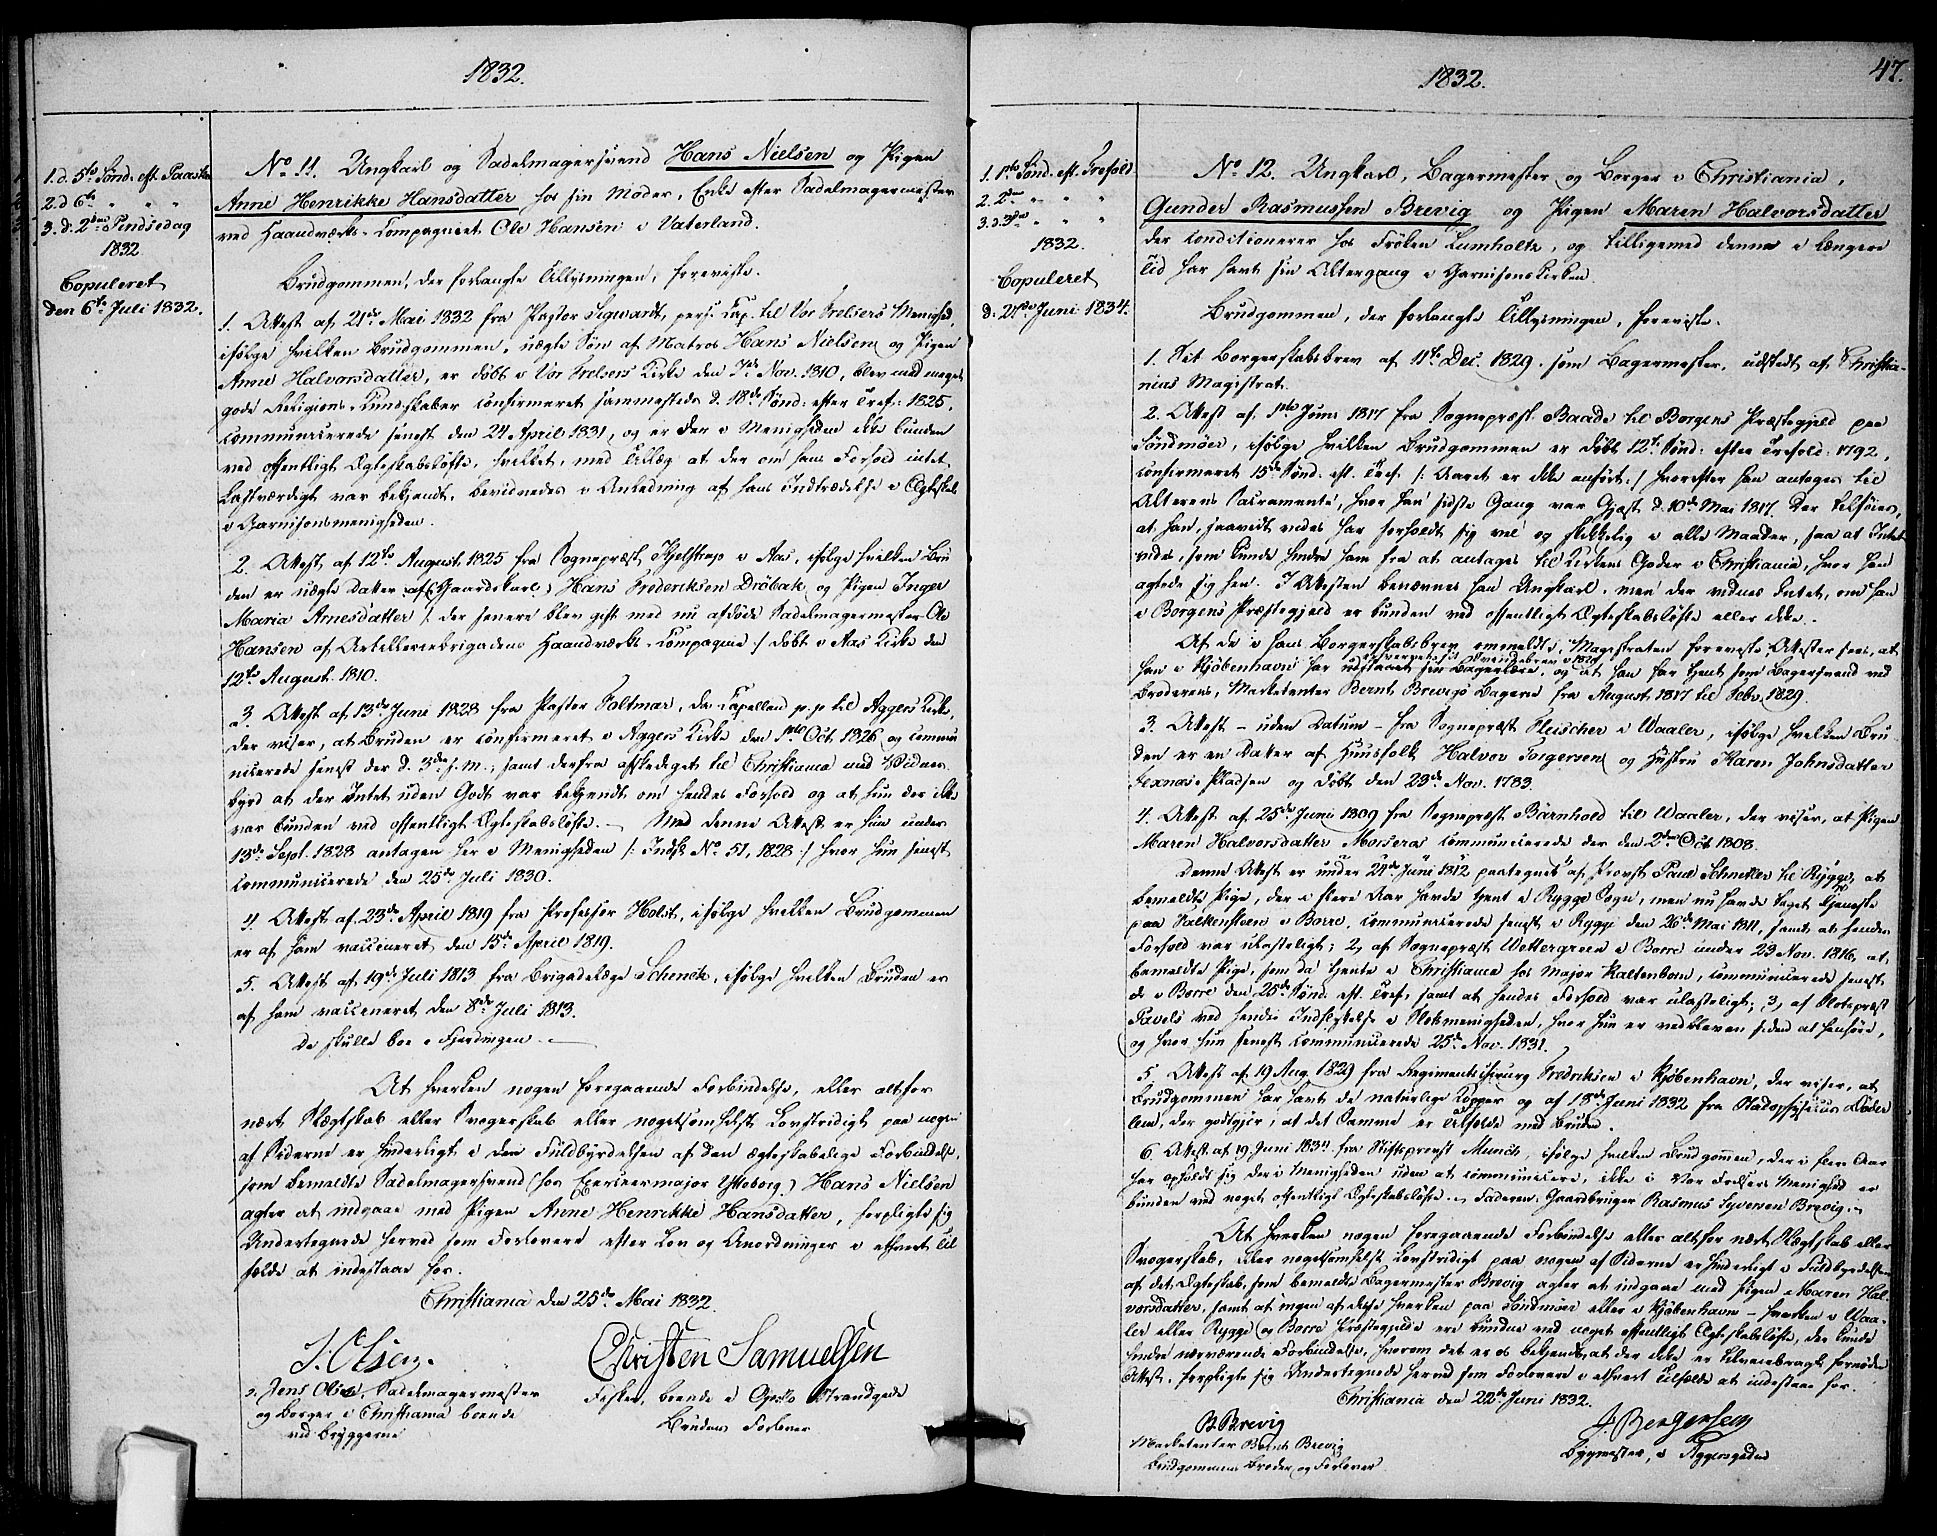 1832.
1. d. 5te Sønd. eft. Paaske
2. d 6te " " "
3. d. 2den Pindsedag
1832
Copuleret
den 6te Juli 1832.
No 11. Ungkarl og Sadelmagersvend Hans Nielsen og Pigen
Anne Henrikke Hansdatter hos sin Moder, Enke efter Sadelmagermester
ved Haandværks-Compagniet Ole Hansen i Vaterland.
Brudgommen, der forlangte Tillysningen, foreviste.
1. Attest af 21de Mai 1832 fra Pastor Sigwardt, pers: Cap. til Vor Frelsers Menighed,
ifølge hvilken Brudgommen, uægte Søn af Matros Hans Nielsen og Pigen
Anne Halvorsdatter, er døbt i Vor Frelsers Kirke den 7de Nov. 1810, blev med meget
gode Religions-Kundskaber confirmeret sammesteds d. 18de Sønd: efter Tref: 1825,
communicerede senest den 24 April 1831, og er der i Menigheden ikke bunden
ved offentligt Ægteskabsløfte, hvilket, med Tillæg at der om hans Forhold intet
Lastværdigt var bekjendt, bevidnedes i Anledning af hans Indtrædelse i Ægteskab
i Garnisonsmenigheden.
2. Attest af 12te August 1825 fra Sognepræst Kjelstrup i Aas, ifølge hvilken Bru
den er uægte Datter af Gaardskarl Hans Frederiksen Drøbak og Pigen Inger
Maria Arnesdatter /: der senere blev gift med nu afdøde Sadelmagermester Ole
Hansen af Artilleriebrigadens Haandværks-Compagnie :/ døbt i Aas Kirke den
12te August 1810.
3. Attest af 13de Juni 1828 fra Pastor Foltmar, da Capelland p.p. til Aggers Kirke,
der viser, at Bruden er confirmeret i Aggers Kirke den 1ste Oct. 1826 og commu
nicerede senest der d. 3de f. M., samt derfra afskediget til Christiania med Vidnes
byrd at der Intet uden Godt var bekjendt om hendes Forhold og at hun der ikke
var bunden ved offentligt Ægteskabsløfte. — Med denne Attest er hun under
13de Sept. 1828 antagen her i Menigheden /: Indsk No. 51, 1828 :/ hvor hun senest
communicerede den 25de Juli 1830.
4. Attest af 23de April 1819 fra Professor Holst, ifølge hvilken Brudgommen
er af ham vaccineret den 15de April 1819.
5. Attest af 19de Juli 1813 fra Brigadelæge Schenck, ifølge hvilken Bruden er
af ham vaccineret den 8de Juli 1813.
De skulle boe i Fjerdingen. —
At hverken nogen foregaaende Forbindelse, eller altfor
nært Slægtskab eller Svogerskab eller nogetsomhelst Lovstridigt paa nogen
af Siderne er hinderligt i den Fuldbyrdelsen af den ægteskabelige Forbindelse,
som bemeldte Sadelmagersvend (hos Ejerceermajor Ytteborg) Hans Nielsen
agter at indgaae med Pigen Anne Henrikke Hansdatter, forpligte sig
Undertegnede herved som Forlovere efter Lov og Anordninger i ethvert Til
fælde at indestaae for.
Christiania den 25de Mai 1832.
J. Olsen.
Christen Samuelsen
Jens Olsen, Sadelmagermester
og Borger i Christiania boende
ved Bryggerne
Fisker, boende i Opslo Strandgade
Brudens Forlover
47.
1832.
1. 1ste Sønd. eft. Trefold.
2. 2den " " "
3. d. 3die " " "
1832.
Copuleret
d. 21de Juni 1834.
No 12. Ungkarl, Bagermester og Borger i Christiania,
Gunder Rasmussen Brevig og Pigen Maren Halvorsdatter
der conditionerer hos Frøken Lumholtz, og tilligemed denne i længere
Tid har havt sin Altergang i Garnisonskirken.
Brudgommen, der forlangte Tillysningen, foreviste.
1. Sit Borgerskabsbrev af 11te Dec. 1829 som Bagermester, udstedt af Christia-
nias Magistrat.
2. Attest af 1ste Juni 1817 fra Sognepræst Baade til Borgens Præstegjeld paa
Søndmøer, ifølge hvilken Brudgommen er døbt 12te Sønd: efter Trefold: 1792,
confirmeret 15de Sønd. eft. Tref. /: Aaret er ikke anført :/ hvorefter han antoges til
Alterens Sacramente, hvor han sidste Gang var Gjæst d. 10de Mai 1817. Der tilføies,
at han, saavidt vides har forholdt sig vel og skikkelig i alle Maader, saa at Intet
vides, som kunde hindre ham fra at antages til Kirkens Goder i Christiania, hvor han
agtede sig hen. I Attesten benævnes han Ungkarl, men der vidnes Intet, om han
i Borgens Præstegjeld er bunden ved offentligt Ægteskabsløfte eller ikke.
Af de i hans Borgerskabsbrev ommeldte, Magistraten foreviste, Attester sees, at
han i Kjøbenhavn har udstaaet sin Bagerlære, og at han har tjent som Bagersvend ved
Broderens, Marketenter Bernt Brevigs Bagerie fra August 1817 til Febr. 1829.
3. Attest – uden Datum – fra Sognepræst Fleischer i Waaler, ifølge hvilken Bru
den er en Datter af Huusfolk Halvor Torgersen og Hustru Karen Johnsdatter
Pladsen og døbt den 23de Nov. 1783.
4. Attest af 25de Juni 1809 fra Sognepræst Barnhold til Waaler, der viser, at Pigen
Maren Halvorsdatter Morserås communicerede der den 2den Oct 1808.
Denne Attest er under 21de Juni 1812 paategnet af Provst Paul Schnitler til Rygge, at
bemeldte Pige, der i flere Aar havde tjent i Rygge Sogn, men nu havde taget Tjeneste
paa Falkensteen i Borre, communicerede senest i Rygge den 26de Mai 1811, samt at hendes
Forhold var ulasteligt; 2, af Sognepræst Wettergreen i Borre under 23 Nov. 1816, at
bemeldte Pige, som da tjente i Christiania hos Major Kaltenborn, communicerede senest
de i Borre den 25de Sønd. eft. Tref. samt at hendes Forhold var ulasteligt; 3, af Slotspræst
Pavels ved hendes Indskrivelse i Slotsmenigheden, hvor hun er vedbleven siden at henhøre,
og hvor hun senest communicerede 25de Nov. 1831.
5. Attest af 19 Aug. 1829 fra Regimentschirurg Fredriksen i Kjøbenhavn, der viser, at
Brudgommen har havt de naturlige Kopper og af 18de Juni 1832 fra Stadsphysicus
der godtgjør, at det Samme er Tilfælde med Bruden.
6. Attest af 19 Juni 1834 fra Stiftsprovst Munch, ifølge hvilken Brudgommen, der i flere Aar
har opholdt sig der i Menigheden uden at communicere, ikke i Vor Frelsers Menighed er
bunden ved noget offentligt Ægteskabsløfte. — Faderen: Gaardbruger Rasmus Syversen Brevig. —
At hverken nogen foregaaende Forbindelse eller altfor nært Slægtskab eller
Svogerskab, eller nogetsomhelst Lovstridigt paa nogen af Siderne er hinderligt i Fuldbyrdelsen
af det Ægteskab, som bemeldte Bagermester Brevig agter at indgaae med Pigen Maren Hal-
vorsdatter, samt at ingen af disse hverken paa Søndmøer eller i Kjøbenhavn – hverken i Waa-
ler eller Rygge og Borre Præstegjelde ere bundne ved noget offentligt Ægteskabsløfte, der kunde
hindre nærværende Forbindelse, hvorom det er os bekjendt, at der ikke er tilveiebragt fornøden
Attest, forpligte sig Undertegnede herved som Forlovere i ethvert Tilfælde at indestaae for.
Christiania den 22de Juni 1832.
B Brevig
J. Bergersen
Marketenter Bernt Brevig
Brudgommens Broder og Forlover
Bygmester, i Aggersgaden